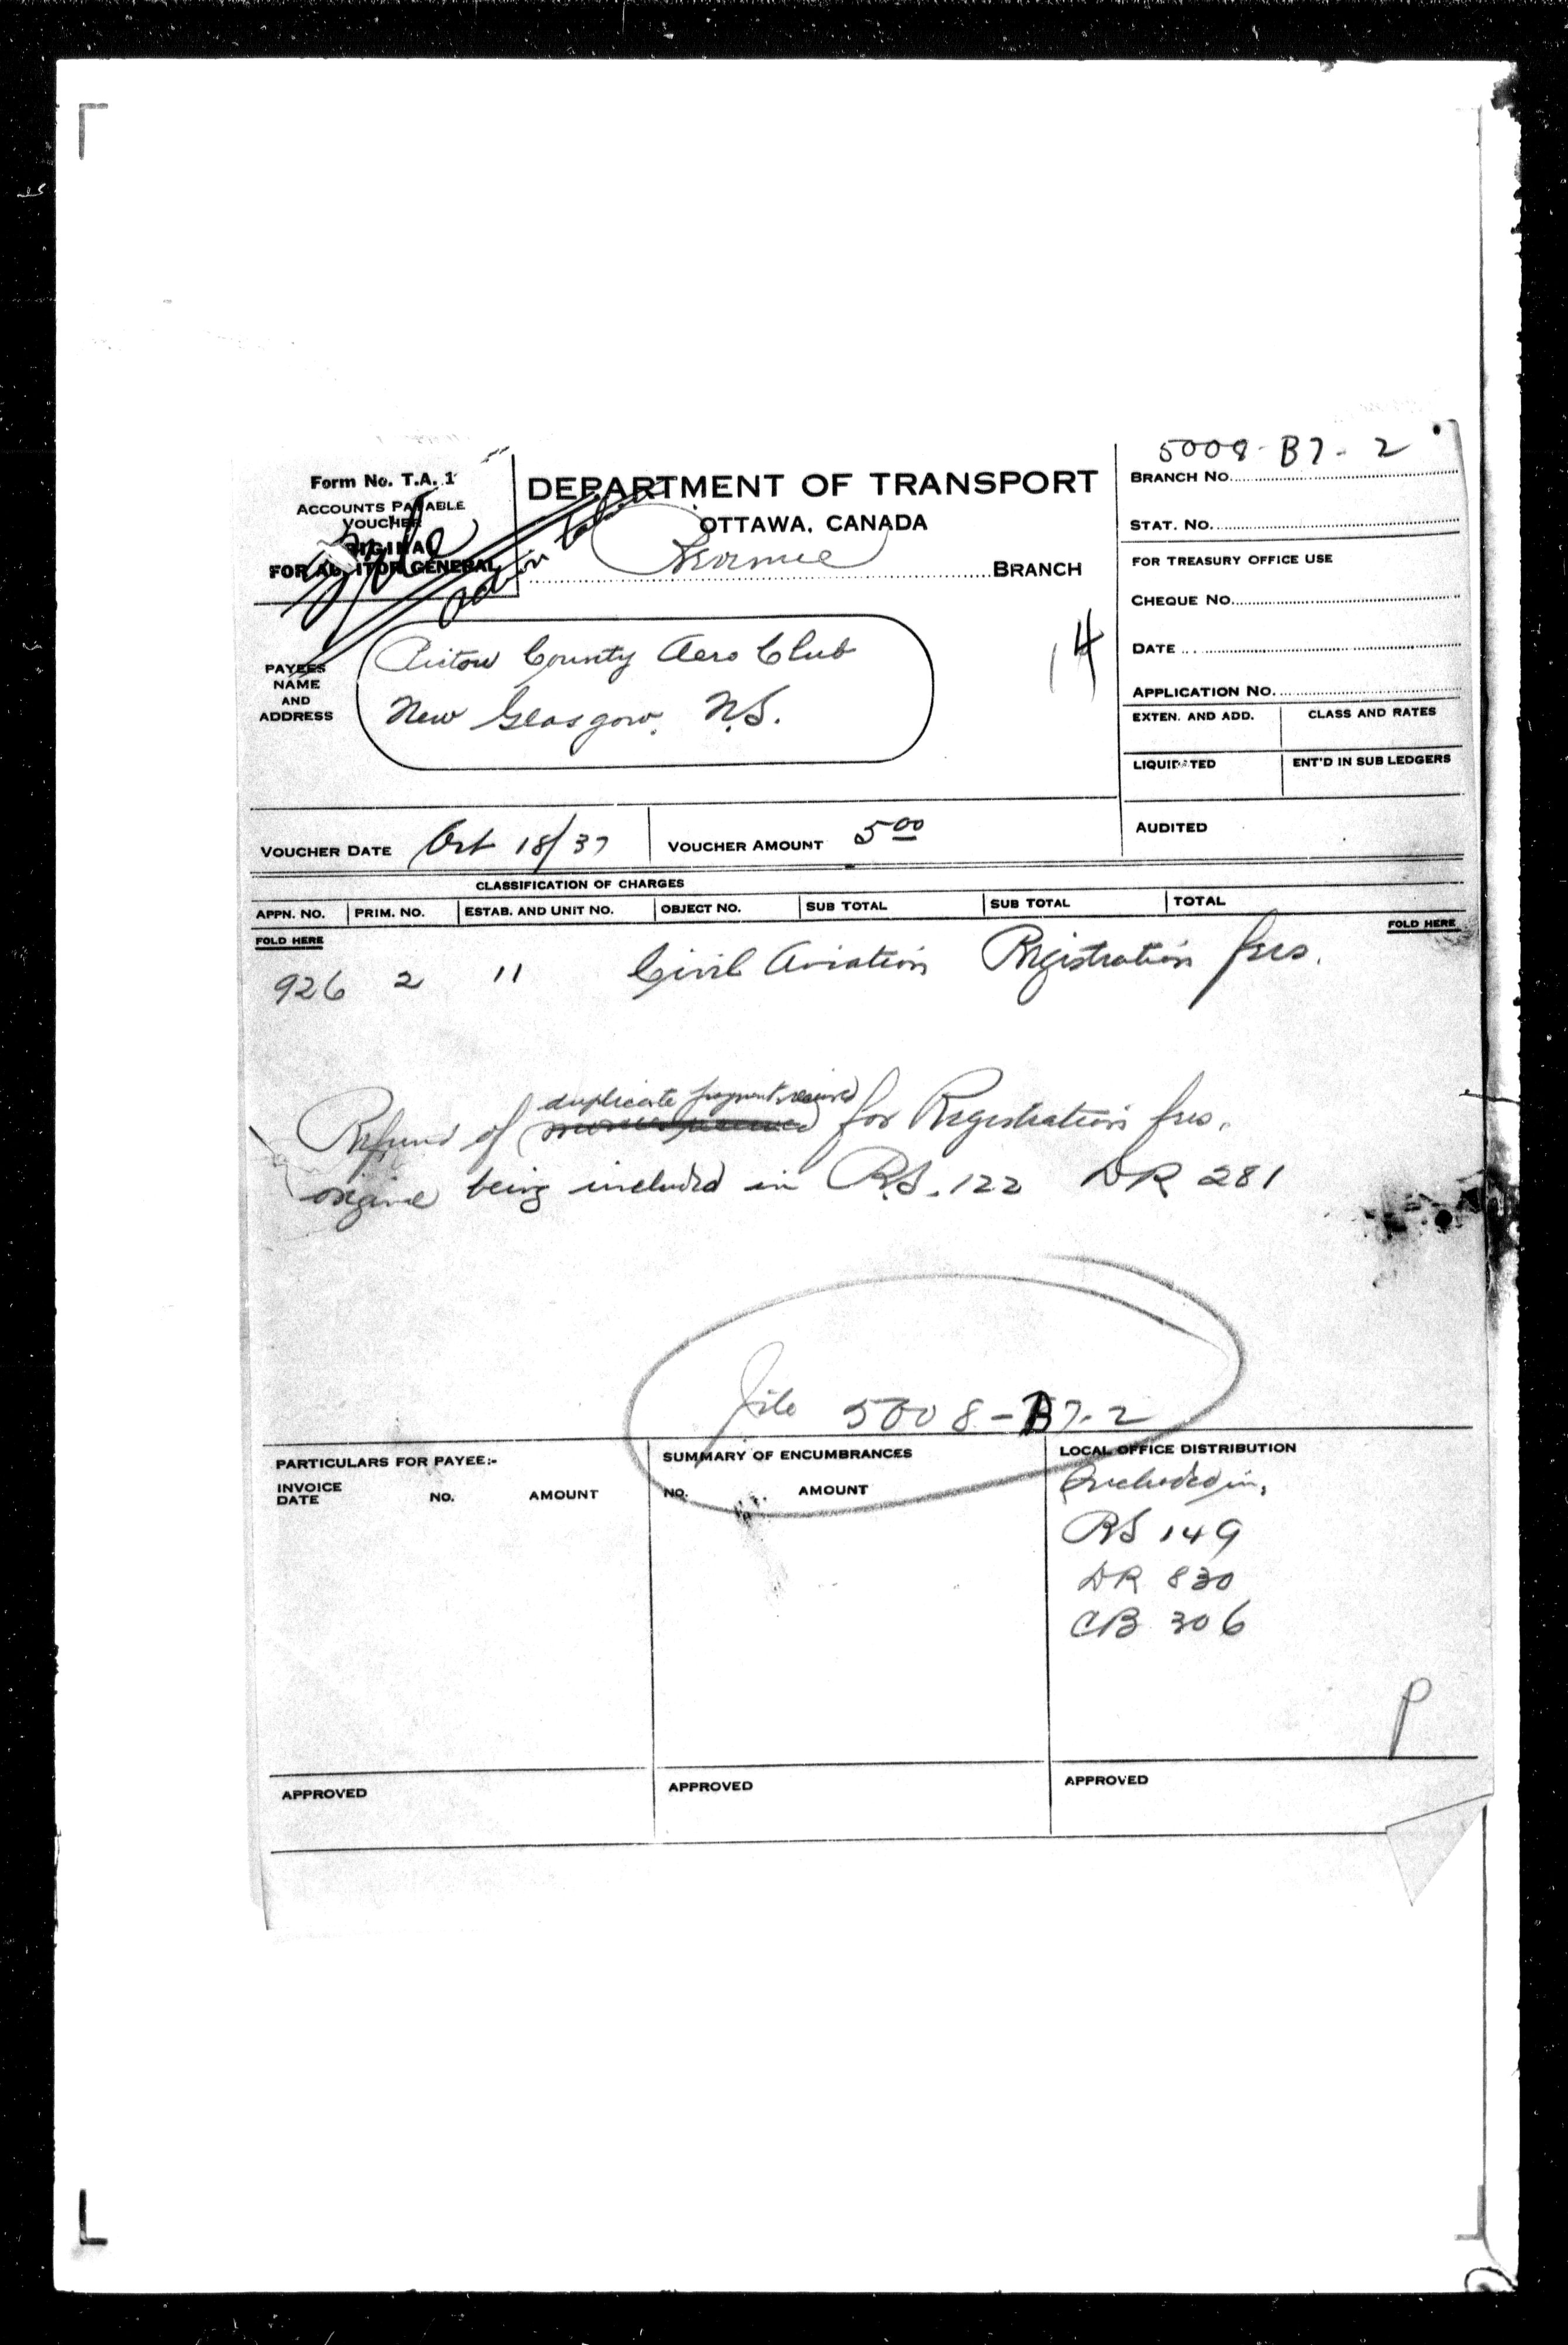 5008-B7-2
Form No. T.A. 1
ACCOUNTS PAYABLE
VOUCHER
ORIGINAL
FOR AUDITOR GENERAL
DEPARTMENT OF TRANSPORT
OTTAWA, CANADA
BRANCH
BRANCH No.
STAT. No.
FOR TREASURY OFFICE USE
CHEQUE No.
DATE
APPLICATION No.
EXTEN. AND ADD. CLASS AND RATES
LIQUIDATED ENT'D IN SUB LEDGERS
AUDITED
PAYEES
NAME
AND
ADDRESS
Pictou County Aero Club
New Glasgow, N.S.
14
VOUCHER DATE Oct 18/37 VOUCHER AMOUNT 5 00
CLASSIFICATION OF CHARGES
APPN. NO. PRIM. NO. ESTAB. AND UNIT NO. OBJECT NO. SUB TOTAL SUB TOTAL TOTAL
FOLD HERE FOLD HERE
926 2 11 Civil Aviation Registration fees.
duplicate payment received
Refund of for Registration fees,
original being included in R.S. 122 DR 281
File 5008-B7-2
PARTICULARS FOR PAYEE:-
INVOICE
DATE NO. AMOUNT
SUMMARY OF ENCUMBRANCES
NO. AMOUNT
LOCAL OFFICE DISTRIBUTION
Included in,
RS 149
DR 830
CB 306
P
APPROVED APPROVED APPROVED